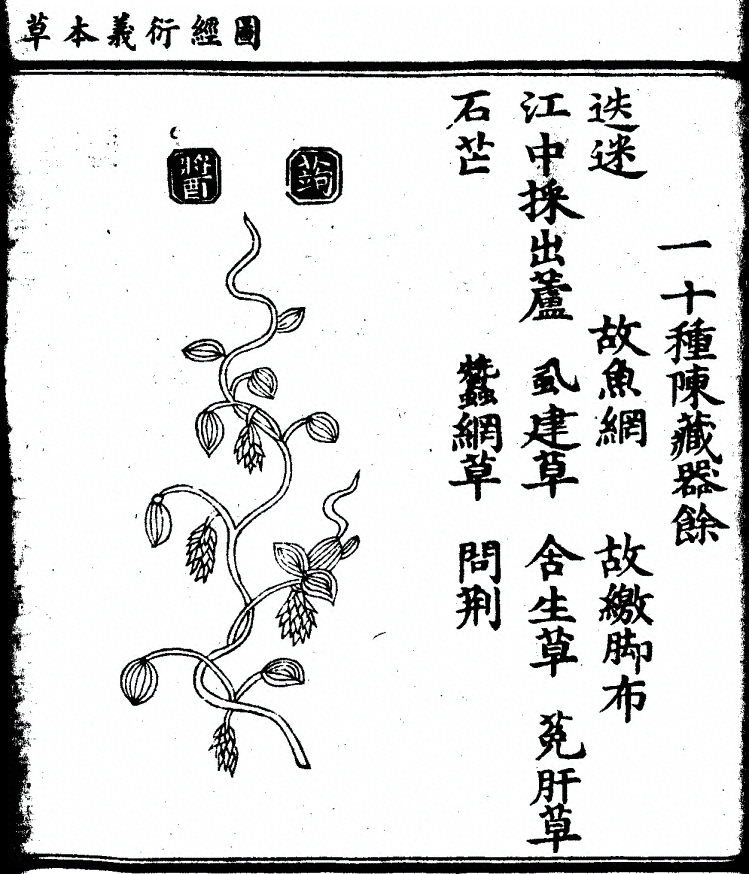 圖經衍義本草
一十種陳藏器餘
迭迷 故魚網 故繳脚布
江中採出蘆 虱建草 含生草 菟肝草
石芒 蠶網草 問荆
蒟醬